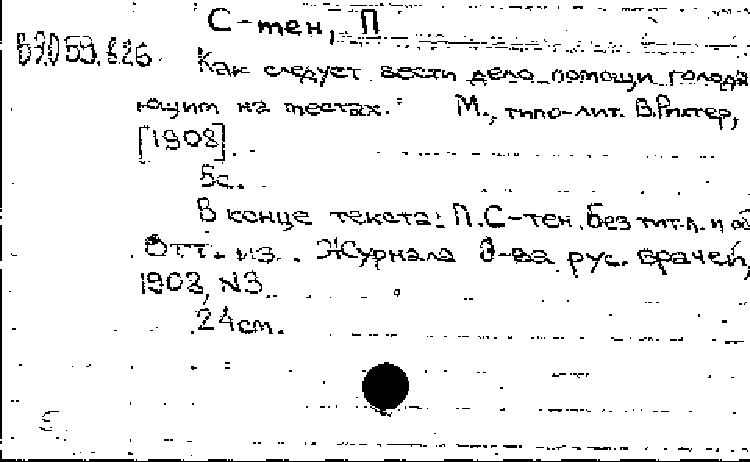 С-тен, П
В 9.059.826
Как следует вести дело помощи голода
ющим на местах. М., типо-лит. В.Рихтер,
[1908]
8с.
В конце текста: П.С-тен. Без тит.л. и об
Отт. из. Журнала О-ва рус. врачей,
1908, N3.
24см.